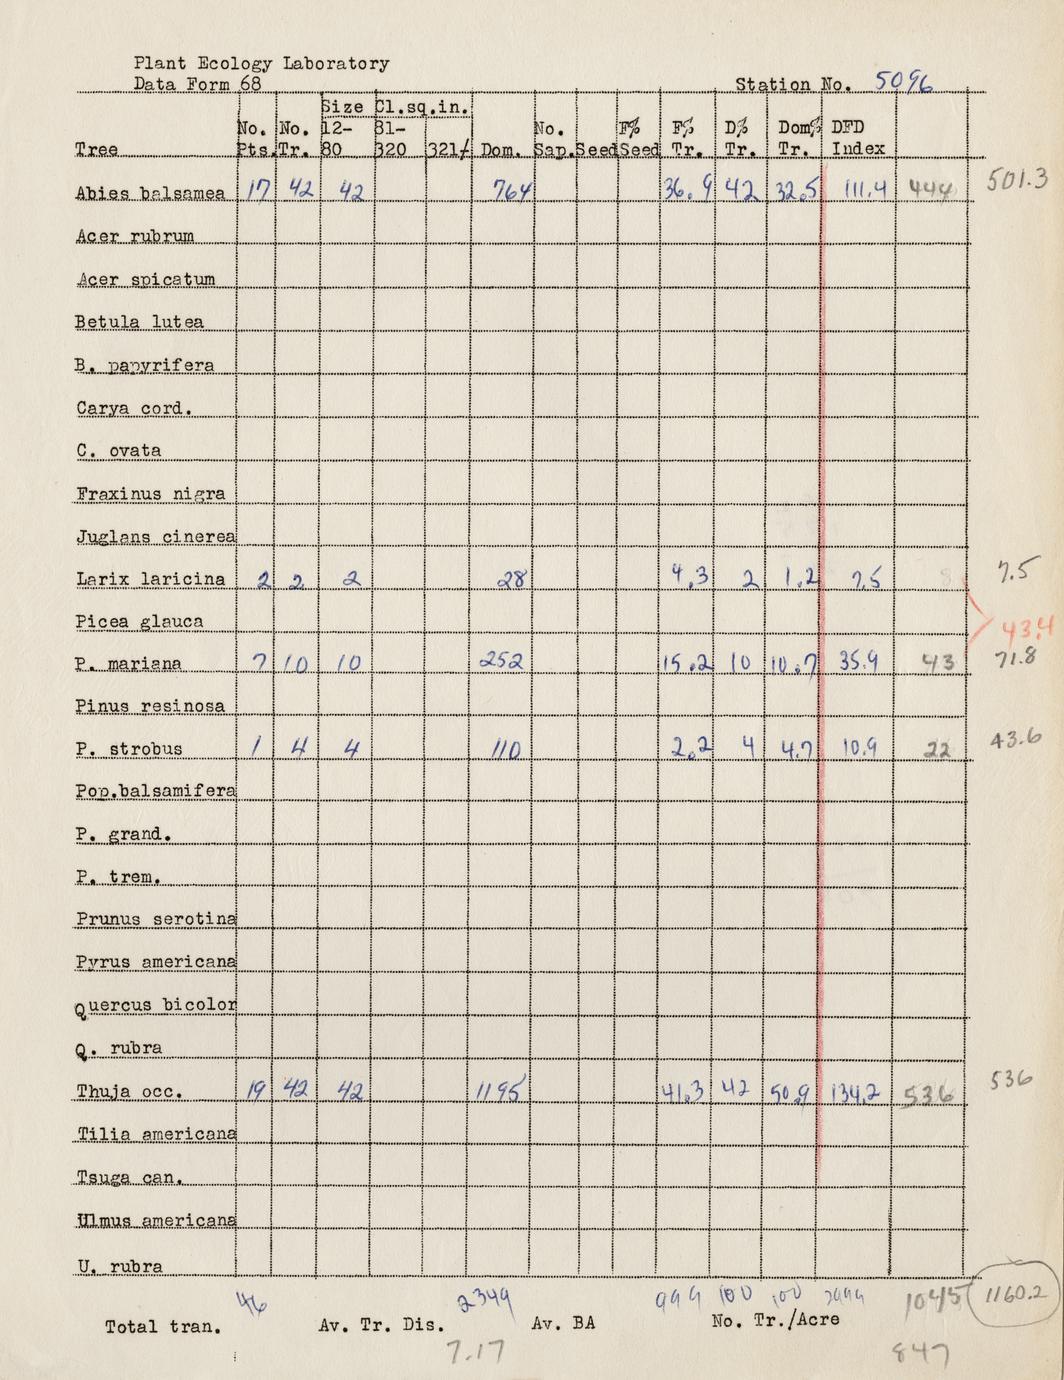 Plant Ecology Laboratory
Data Form 68
Station No. 5096
Size Cl.sq.in.
No. No. 12- 81- No. F% F% D% Dom% DFD
Tree Pts. Tr. 80 320 321/ Dom. Sap. Seed Seed Tr. Tr. Tr. Index
Abies balsamea 17 42 42 764 36.9 42 32.5 111.4 444 501.3
Acer rubrum
Acer spicatum
Betula lutea
B. papyrifera
Carya cord.
C. ovata
Fraxinus nigra
Juglans cinerea
Larix laricina 2 2 2 28 4.3 2 1.2 7.5 8 7.5
Picea glauca 43.4
P. mariana 7 10 10 252 15.2 10 10.7 35.9 43 71.8
Pinus resinosa
P. strobus 1 4 4 110 2.2 4 4.7 10.9 22 43.6
Pop.balsamifera
P. grand.
P. trem.
Prunus serotina
Pyrus americana
Quercus bicolor
Q. rubra
Thuja occ. 19 42 42 1195 41.3 42 50.9 134.2 536 536
Tilia americana
Tsuga can.
Ulmus americana
U. rubra
46 2349 99 9 100 100 2999 1045 1160.2
Total tran. Av. Tr. Dis. Av. BA No. Tr./Acre
7.17 847